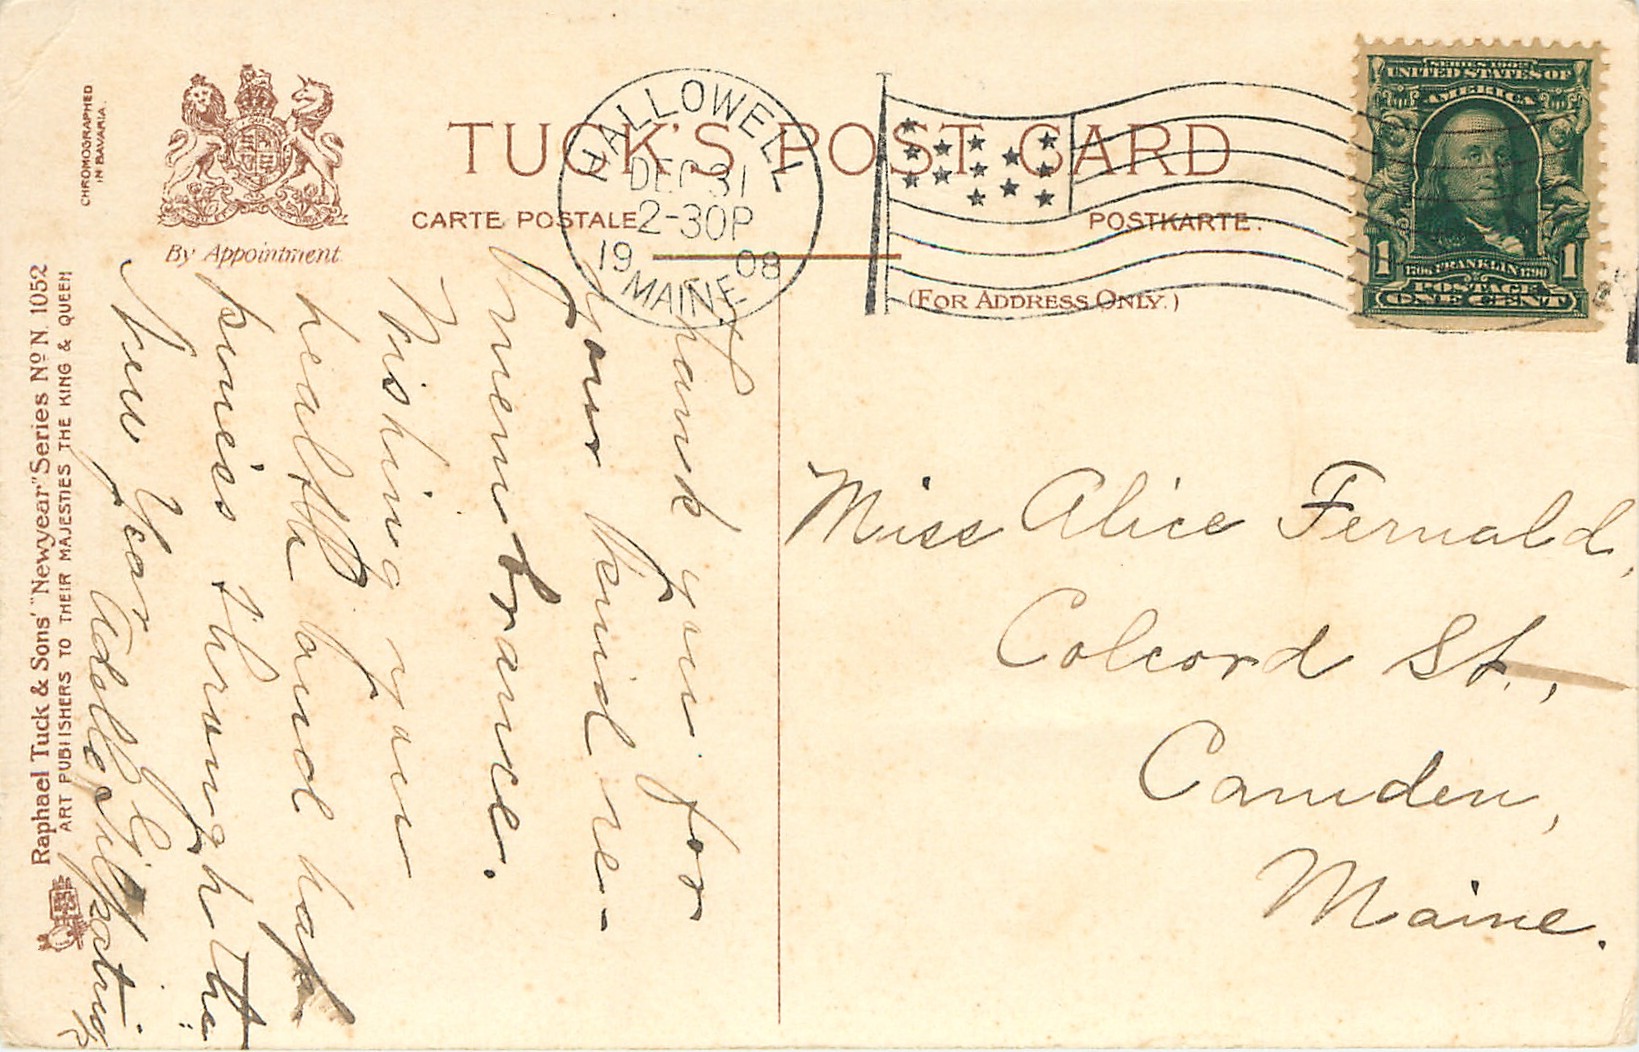 CHROMOGRAPHED
IN BAVARIA.
By Appointment
TUCK'S POST CARD
CARTE POSTALE
POSTKARTE.
(FOR ADDRESS ONLY.)
HALLOWELL
DEC 31
2-30P
1908
MAINE
SERIES 1902
UNITED STATES OF
AMERICA
1706 FRANKLIN 1790
1 1
POSTAGE
ONE CENT
Raphael Tuck & Sons' "Newyear" Series No N. 1052
ART PUBLISHERS TO THEIR MAJESTIES THE KING & QUEEN
Thank you for
your kind re-
membrance.
Wishing you
health and hap
piness through the
New Year
Adelle
Miss Alice Fernald,
Colcord St.,
Camden,
Maine.